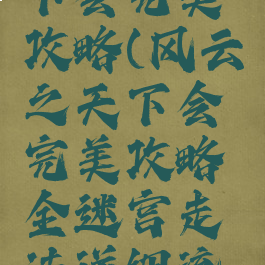 下会完美
攻略(风云
之天下会
完美攻略
全迷宫走
法详细流